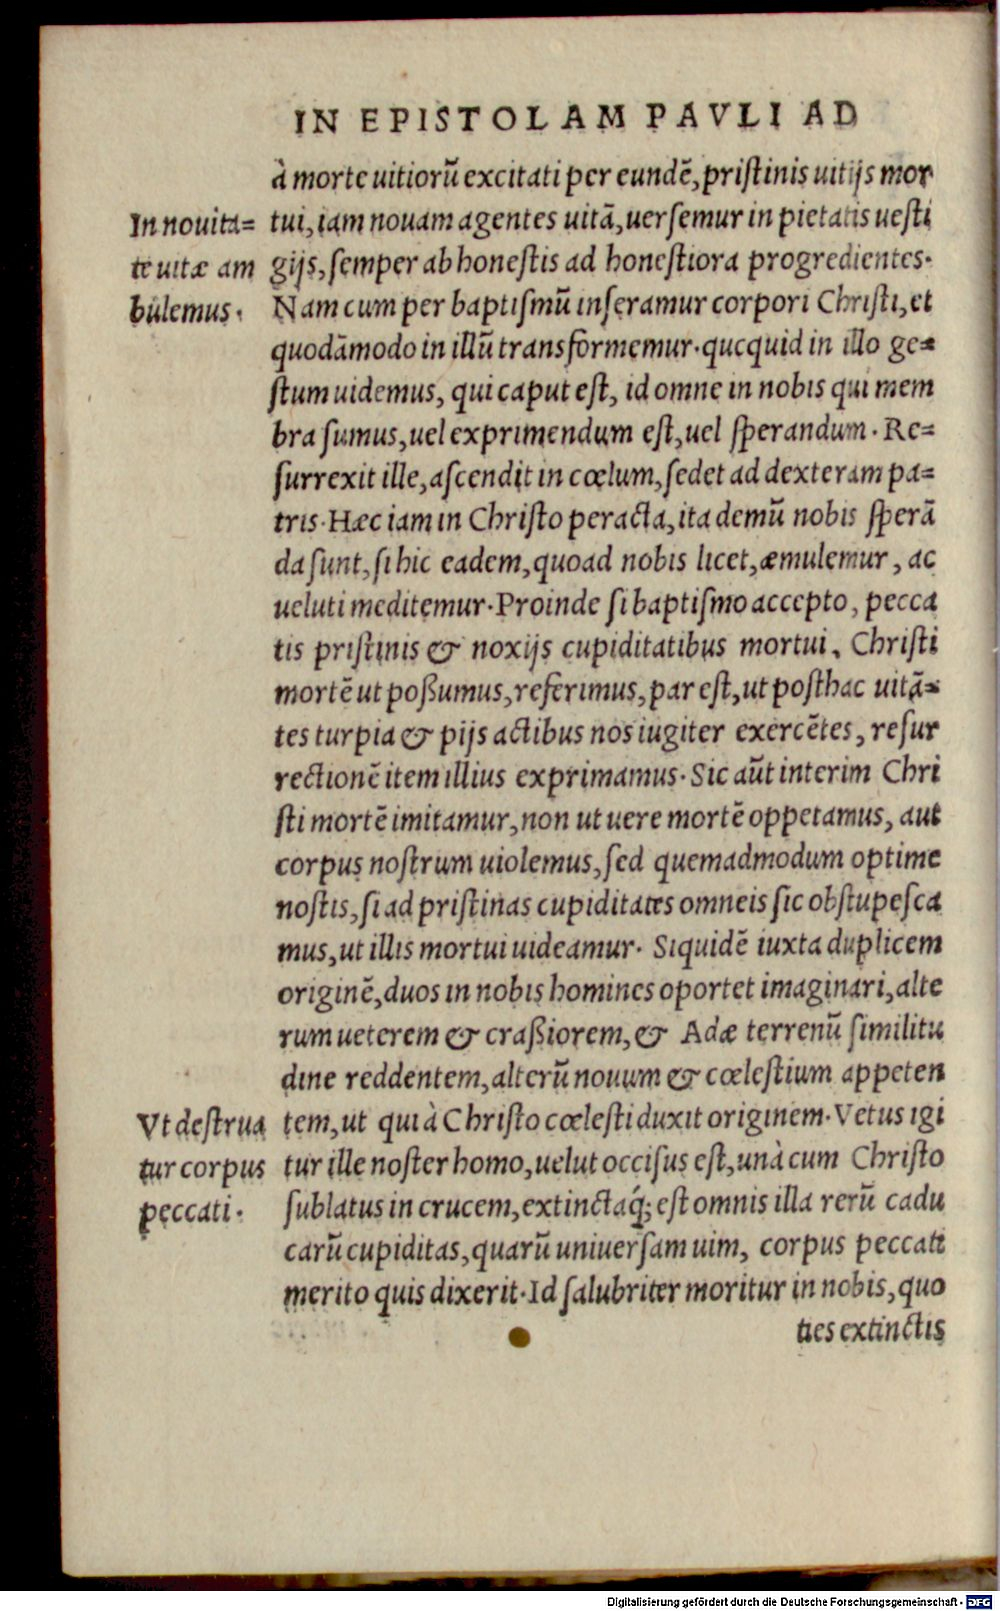 IN EPISTOLAM PAVLI AD
à morte uitiorũ excitati per eundẽ, pristinis uitijs mor
tui, iam nouam agentes uitã, uersemur in pietatis uesti
gijs, semper ab honestis ad honestiora progredientes.
Nam cum per baptismũ inseramur corpori Christi, et
quodãmodo in illũ transformemur. qucquid in illo ge=
stum uidemus, qui caput est, id omne in nobis qui mem
bra sumus, uel exprimendum est, uel sperandum. Re=
surrexit ille, ascendit in cœlum, sedet ad dexteram pa=
tris. Hæc iam in Christo peracta, ita demũ nobis sperã
da sunt, si hic eadem, quoad nobis licet, æmulemur, ac
ueluti meditemur. Proinde si baptismo accepto, pecca
tis pristinis & noxijs cupiditatibus mortui, Christi
mortẽ ut poßumus, referimus, par est, ut posthac uitã=
tes turpia & pijs actibus nos iugiter exercẽtes, resur
rectionẽ item illius exprimamus. Sic aũt interim Chri
sti mortẽ imitamur, non ut uere mortẽ oppetamus, aut
corpus nostrum uiolemus, sed quemadmodum optime
nostis, si ad pristinas cupiditates omneis sic obstupesca
mus, ut illis mortui uideamur. Siquidẽ iuxta duplicem
originẽ, duos in nobis homines oportet imaginari, alte
rum ueterem & craßiorem, & Adæ terrenũ similitu
dine reddentem, alterũ nouum & cœlestium appeten
tem, ut qui à Christo cœlesti duxit originem. Vetus igi
tur ille noster homo, uelut occisus est, unà cum Christo
sublatus in crucem, extinctaq́; est omnis illa rerũ cadu
carũ cupiditas, quarũ uniuersam uim, corpus peccati
merito quis dixerit. Id salubriter moritur in nobis, quo
ties extinctis
In nouita=
te uitæ am
bulemus.
Vt destrua
tur corpus
peccati.
Digitalisierung gefördert durch die Deutsche Forschungsgemeinschaft - DFG